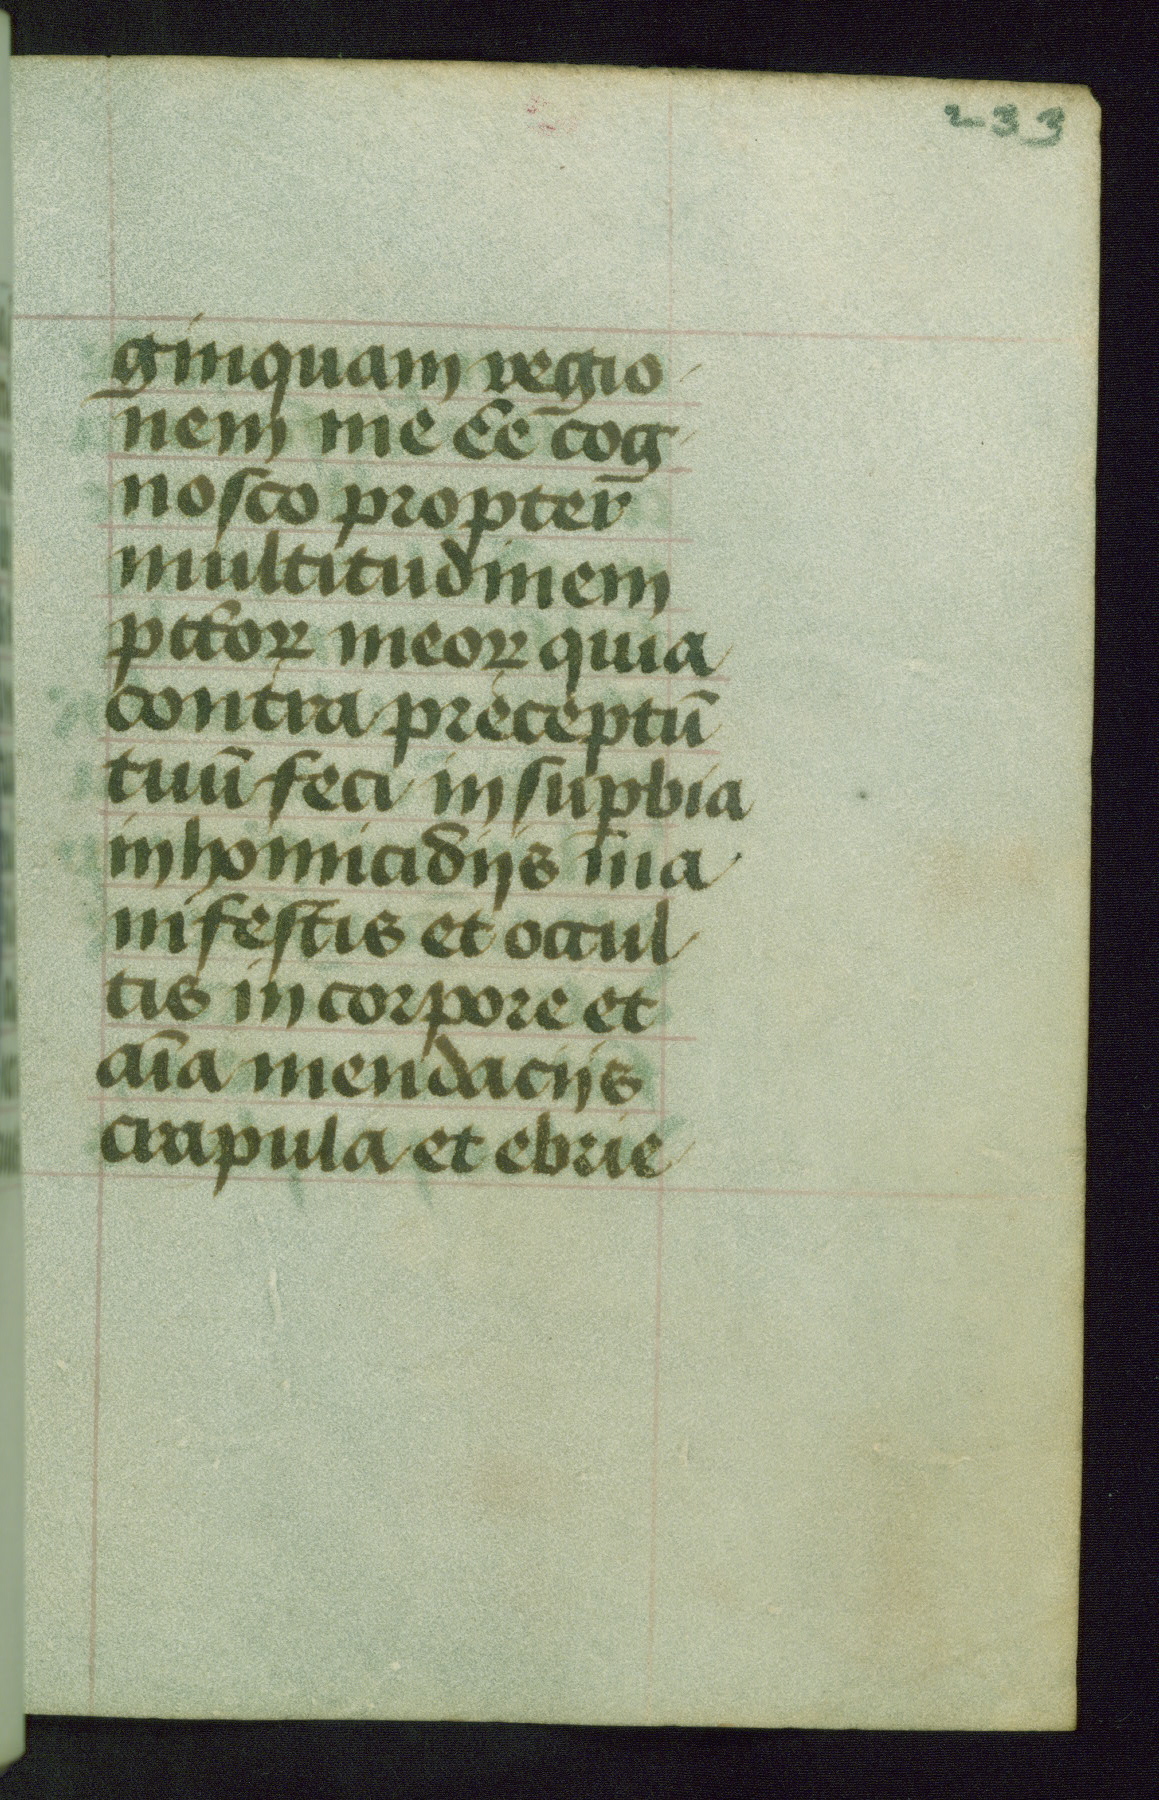 233
ginquam regio
nem me ēē cog
nosco propter
multitudinem
pctōꝝ meoꝝ quia
contra preceptū
tuū feci in suꝑbia
in homicidijs ma
nifestis et occul
tis in corpore et
aīa mendacijs
crapula et ebrie